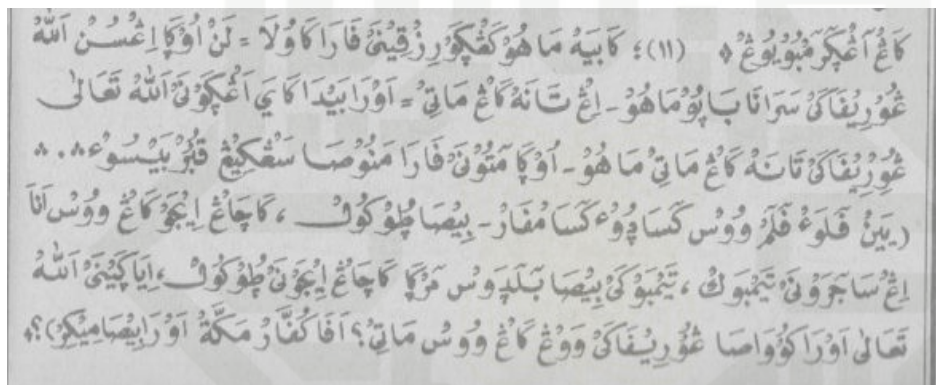 كَاڠْ اَڠْكَرَمْبُوْيُوْڠْ ۞ (١١)؛ كَابَيَهْ مَاهُوْ كَڠْڮَوٓ رِزْقِيْنَيْ فَارَا كَاوُلَا = لَنْ اُوْڮَا اِڠْسُنْ اَللّٰهُ
ڠُوْرِيْفَاكَيْ سَرَانَا بَاپُوْ مَاهُوْ ـ اِڠْ تَانَهْ كَاڠْ مَاتِيْ = اَوْرَا بَيْدَا كَايَ اَڠْڮَوٓنَيْ اَللّٰهُ تَعَالٰى
ڠُوْرِيْفَاكَيْ تَانَهْ كَاڠْ مَاتِيْ مَاهُوْ ـ اُوْڮَا مَتُوْنَيْ فَارَا مَنُوْصَا سَڠْكِيْڠْ قُبُرْ بَيْسُوْء ۞ ۞
(يَيْنْ فَلَوْءْ فَلَمْ وُوْسْ كَسَادَوْءْ كَسَامْفَارْ ـ بِيْصَا ڟُوْكُوْلْ، كَاچَاڠْ اِيْجَوْ كَاڠْ وُوْسْ اَنَا
اِڠْ سَاجَرَوْنَيْ تَيْمْبَوكْ، تَيْمْبَوْكَيْ بِيْصَا بَلَيْدَوْسْ مَرْڮَا كَاچَاڠْ اِيْجَوْنَيْ ڟُوْكُوْلْ، اِيَا كَيْنَيْ اَللّٰهُ
تَعَالٰى اَوْرَا كُوْوَاصَا ڠُوْرِيْفَاكَيْ وَوْڠْ كَاڠْ وُوْسْ مَاتِيْ؟ اَفَا كُفَّارْ مَكَّةْ اَوْرَا بِيْصَا مِيْكِرْ)؟ ۞